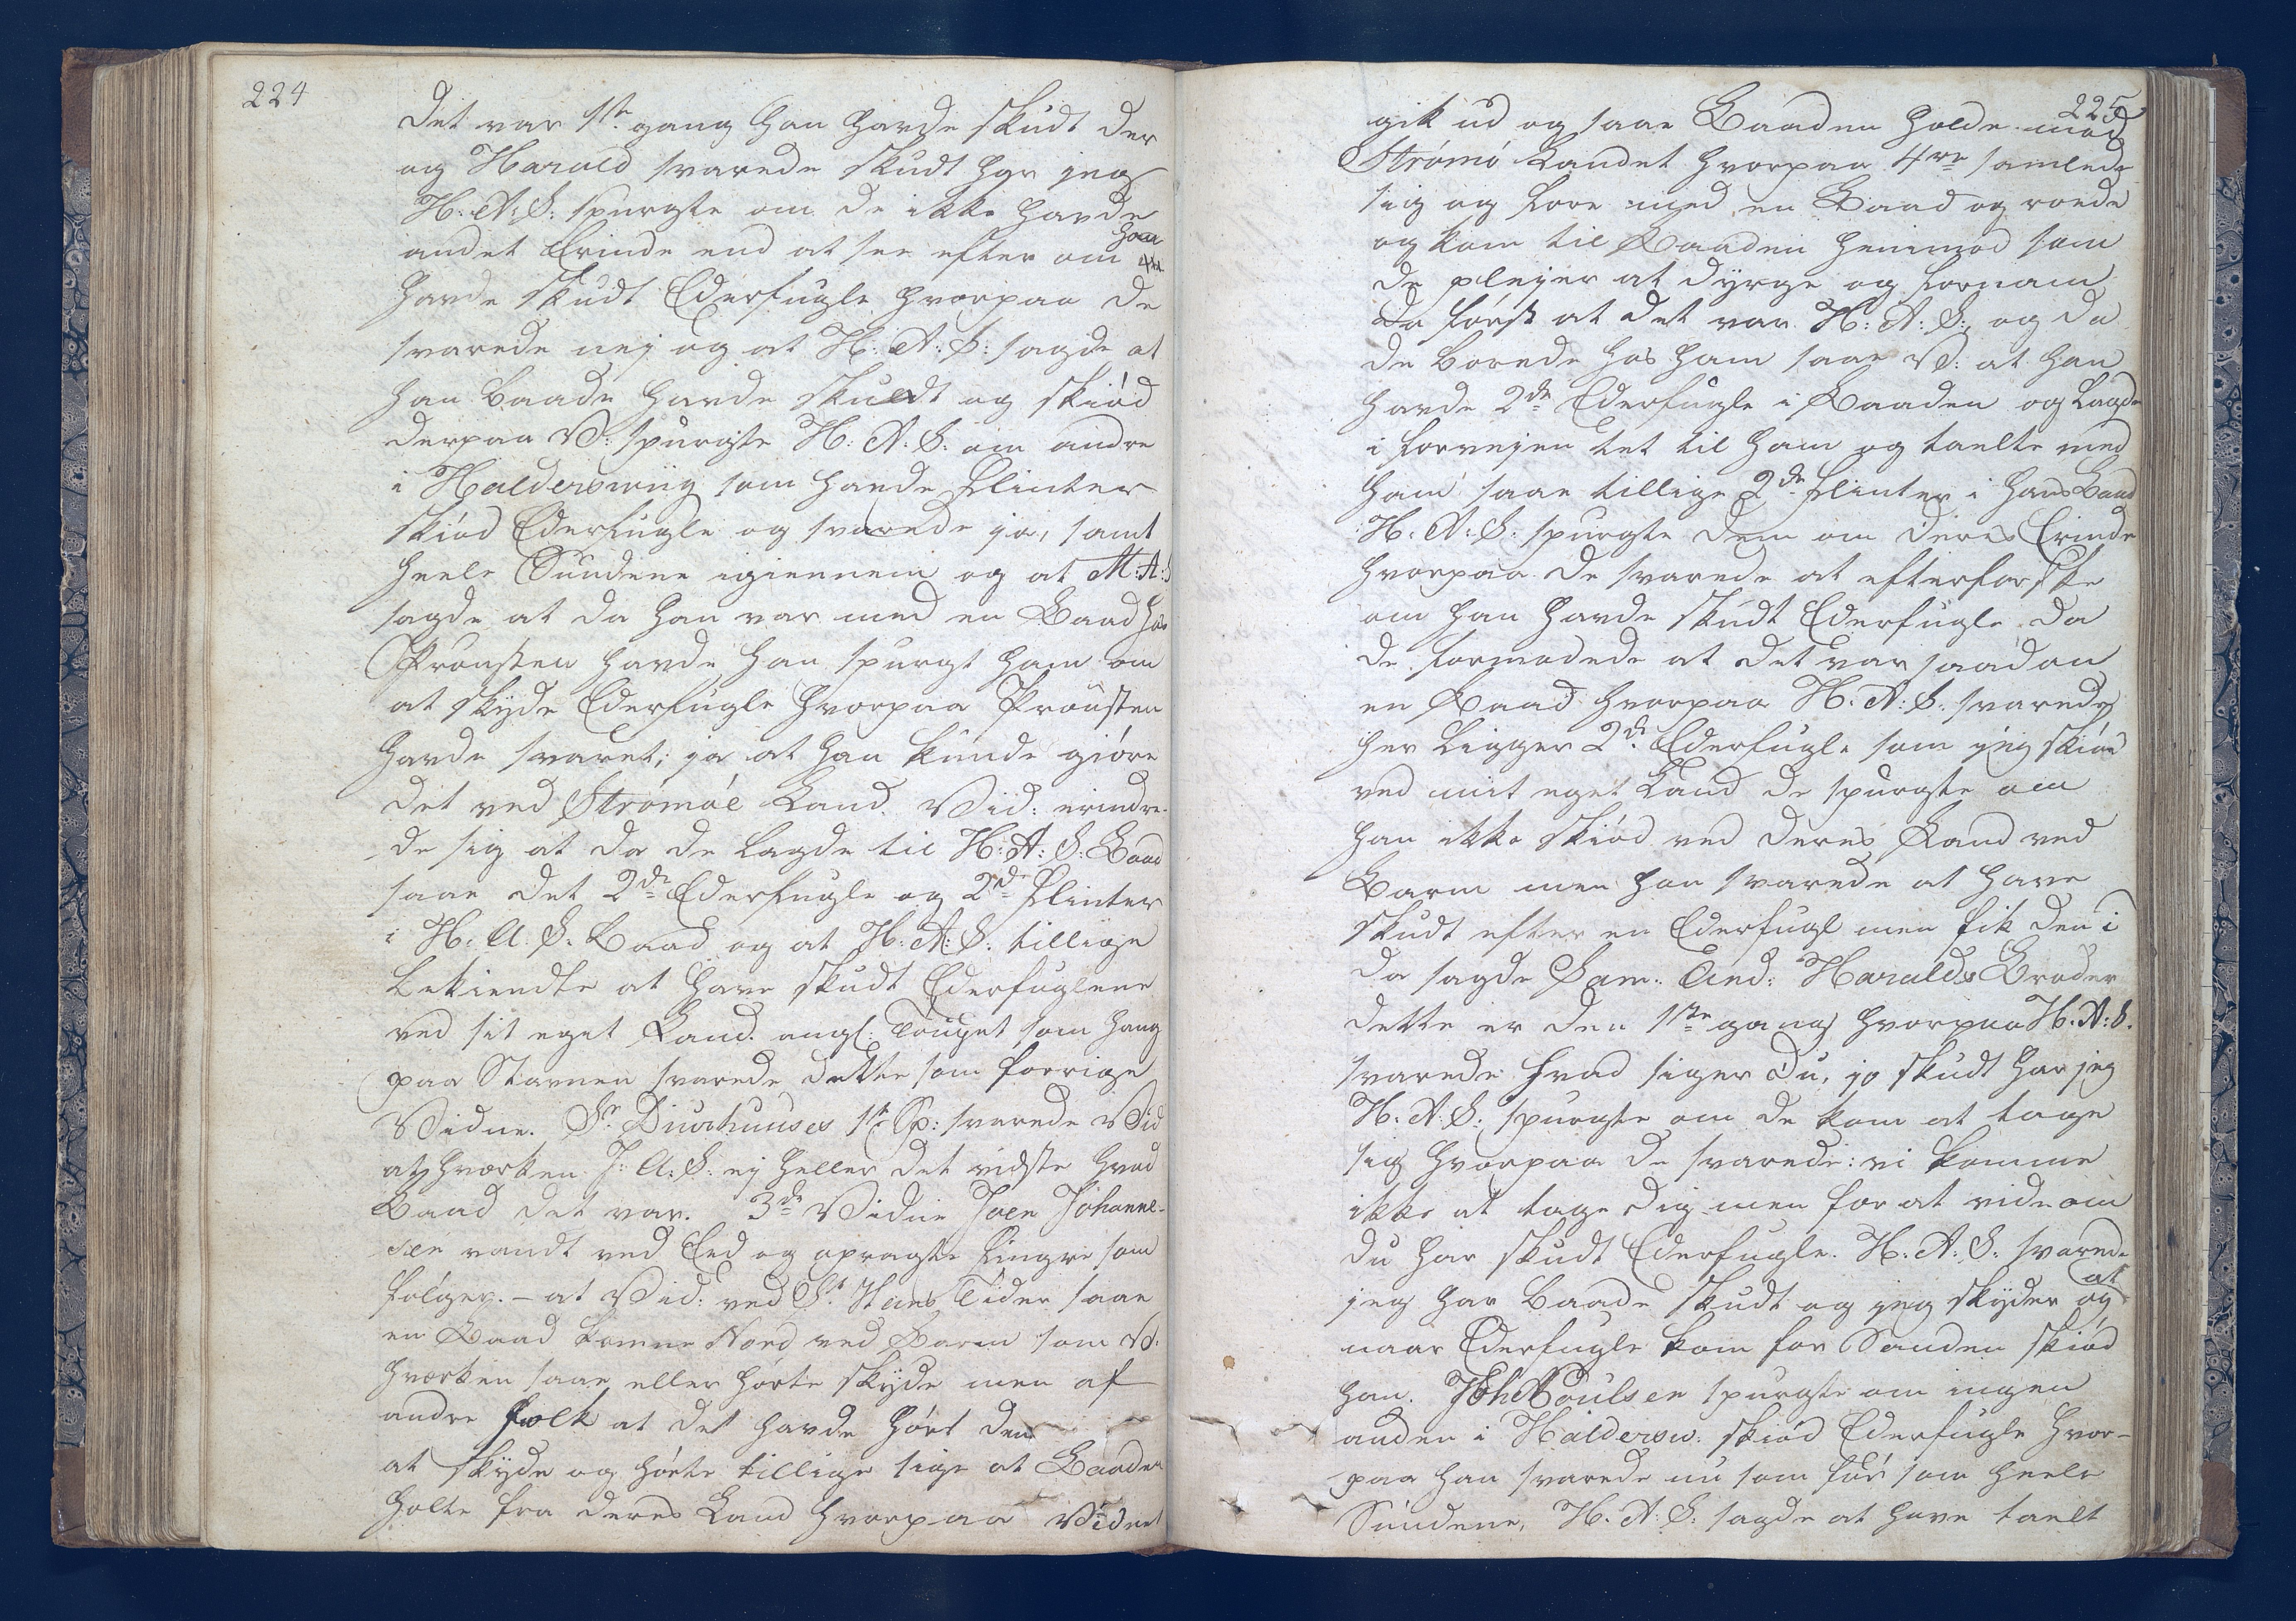 224
det var 1ste gang han havde skudt der
og Harald svarede skudt har jeg
H: A: S: spurgte om de ikke havde
andet Erinde end at see efter om han
havde skudt Ederfugle hvorpaa de
svarede nej og at H: A: S: sagde at
han baade havde skudt og skiød
derpaa V: spurgte H: A: S: om andre
i Halderswiig som havde Flinter
skiød Ederfugle og svarede ja, samt
heele Sundene igiennem og at M: A: S
sagde at da han var med en Baad hos
Prousten havde han spurgt ham om
at skyde Ederfugle hvorpaa Prousten
havde svaret; ja at han kunde giøre
det ved Strømøe Land. Vid: erindre-
de sig at da de lagde til H: A: S: Baad
saae det 2de Ederfugle og 2de Flinter
i H: A: S: Baad og at H: A: S: tillige
bekiendte at have skudt Ederfuglene
ved sit eget Land. angl: Touget som hang
paa Stavnen svarede dette som forrige
Vidne. Sr Diurhuuses 1ste Sp: svarede Vid
at hverken J: A: S: ej heller det vidste hvad
Baad det var. 3de Vidne Joen Johanne-
sen vandt ved Eed og opragte Fingre som
følger. – at Vid: ved St. Hans Tider saae
en Baad komme Nord ved Barm som V:
hverken saae eller hørte skyde men af
andre Folk at det havde hørt den
at skyde og hørte tillige sige at Baaden
holte fra deres Land hvorpaa Vidnet
225
gik ud og saae Baaden holde mod
Strømø Landet hvorpaa 4re samlede
sig og fore med en Baad og roede
og kom til Baaden henimod som
de plejer at dyrge og fornam
da først at det var H: A: S: og da
de borede hos ham saae V: at han
havde 2de Ederfugle i Baaden og lagde
i forvejen tet til ham og taelte med
ham saae tillige 2de Flinter i hans Baad
H: A: S: spurgte dem om deres Erinde
hvorpaa de svarede at efterforske
om han havde skudt Ederfugle da
de formodede at det var saadan
en Baad hvorpaa H: A: S: svarede
her ligger 2de Ederfugle som jeg skiød
ved mit eget Land de spurgte om
han ikke skiød ved deres Land ved
Barm men han svarede at have
skudt efter en Ederfugl men fik den i
da sagde Sam: And: Haralds Broder
dette er den 1ste gang hvorpaa H: A: S.
svarede hvad siger du, jo skudt har jeg
H: A: S: spurgte om de kom at tage
sig hvorpaa de svarede: vi komme
ikke at tage dig men for at vide om
du har skudt Ederfugle. H: A: S: svarede
jeg har baade skudt og jeg skyder og at
naar Ederfugle kom for Sanden skiød
han. Joh Poulsen spurgte om ingen
anden i Haldersw: skiød Ederfugle hvor-
paa han svarede nu som før som heele
Sundene, H. A: S: sagde at have taelt